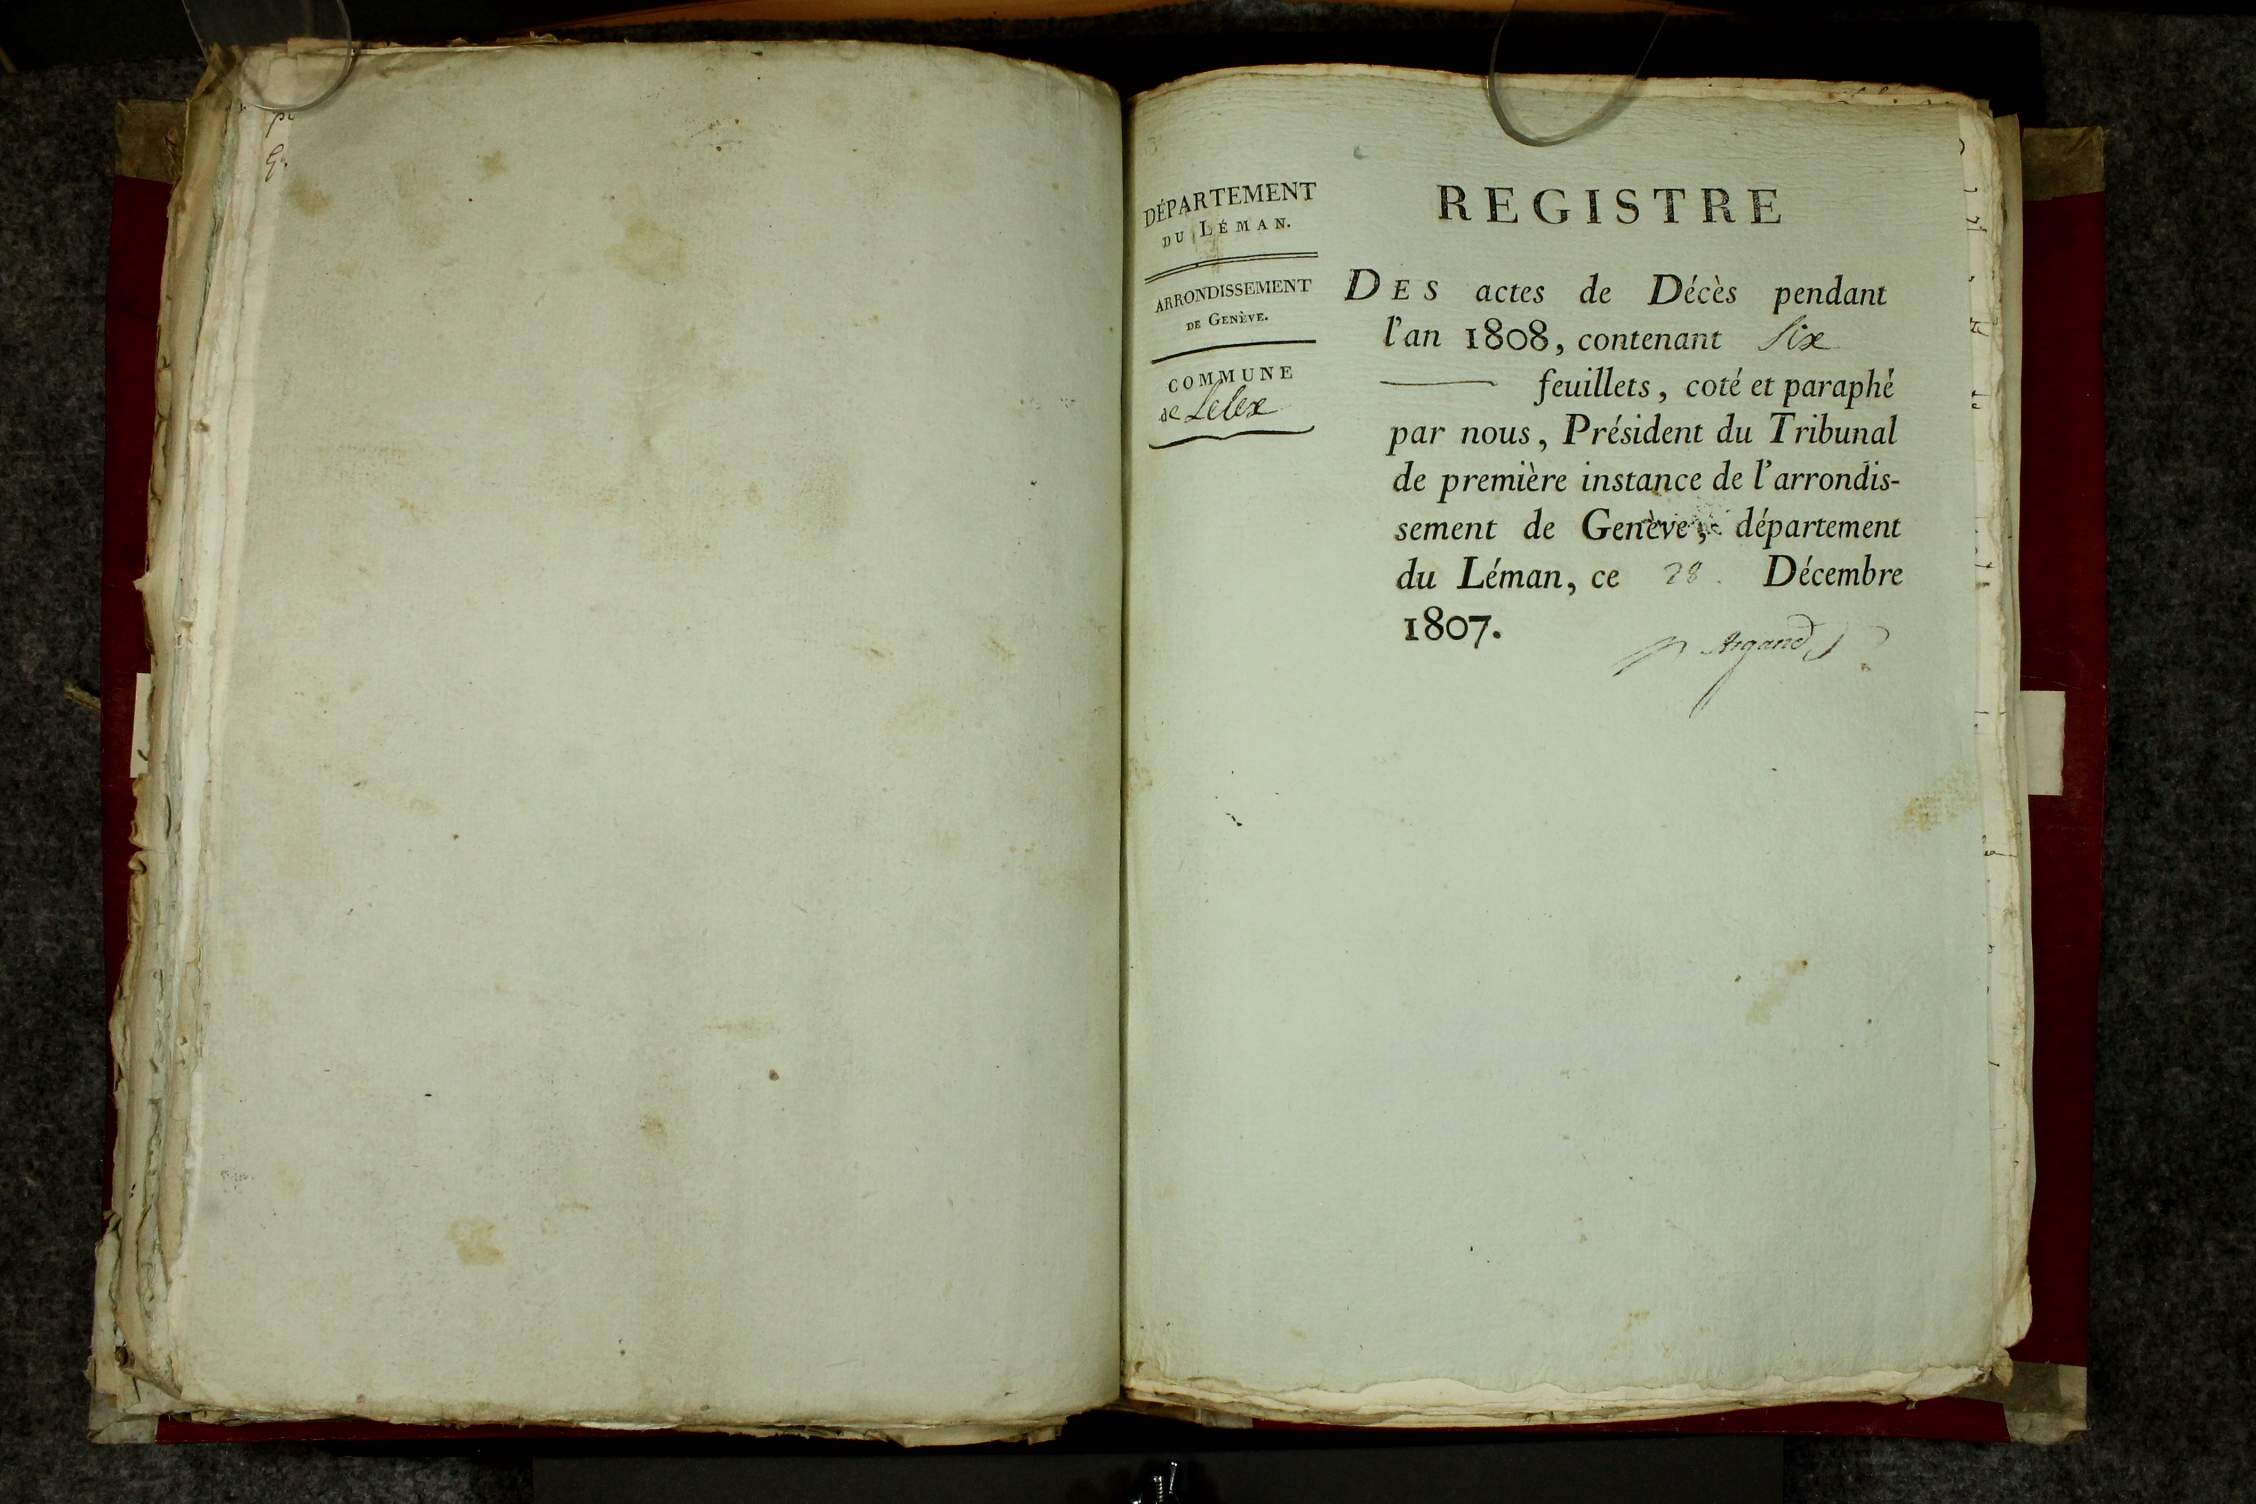 DÉPARTEMENT
DU LÉMAN.
ARRONDISSEMENT
DE GENÈVE.
COMMUNE
de Lelex
REGISTRE
DES actes de Décès pendant
l'an 1808, contenant Six
feuillets, coté et paraphé
par nous, Président du Tribunal
de première instance de l'arrondis-
sement de Genève, département
du Léman, ce 28. Décembre
1807.
Argand